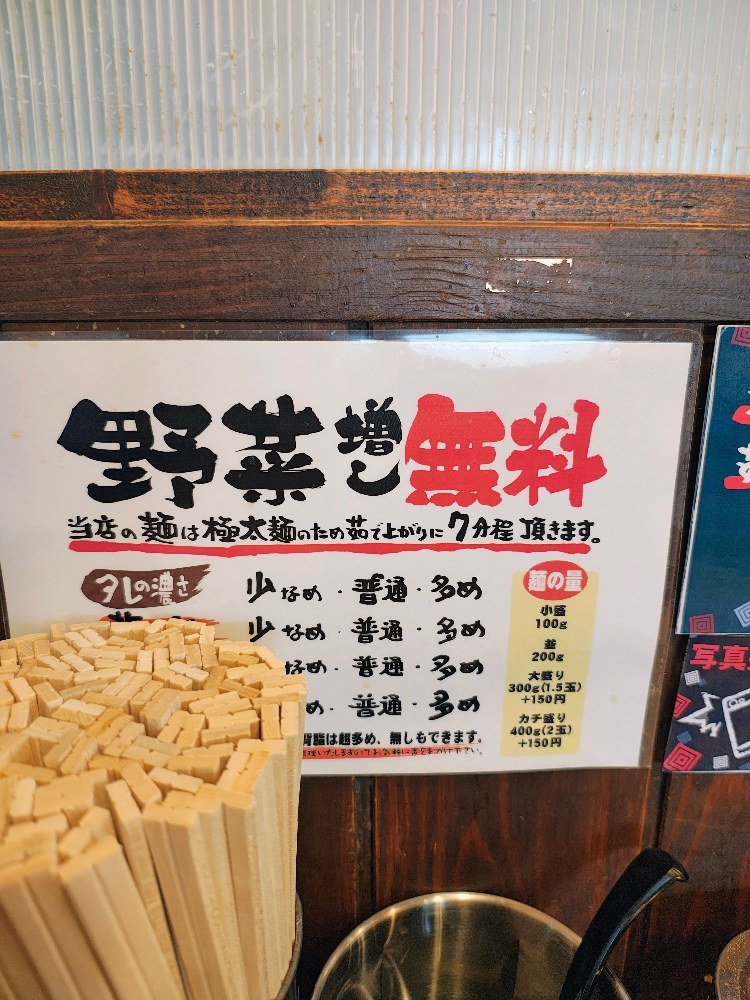 野菜増し無料
当店の麺は極太麺のため茹で上がりに7分程頂きます。
タレの濃さ 少なめ・普通・多め
少なめ・普通・多め
なめ・普通・多め
め・普通・多め
背脂は超多め、無しもできます。
麺の量
小盛
100g
並
200g
大盛り
300g(1.5玉)
+150円
カチ盛り
400g(2玉)
+150円
写真